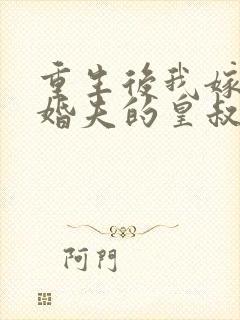 重生後我嫁
婚夫的皇叔
阿門